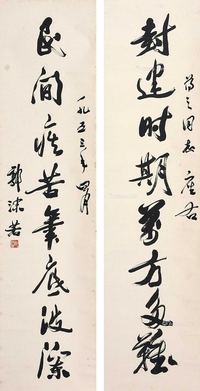 封建时期万方多难
蒋之同志座右
民间疾苦笔底波澜
一九五三年四月
郭沫若